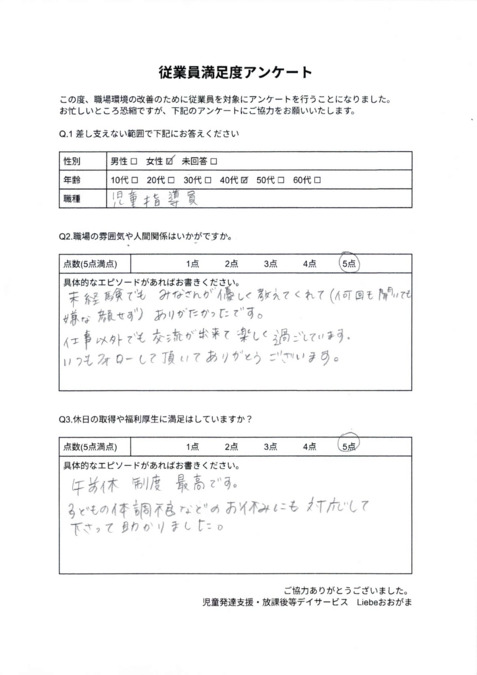 従業員満足度アンケート
この度、職場環境の改善のために従業員を対象にアンケートを行うことになりました。
お忙しいところ恐縮ですが、下記のアンケートにご協力をお願いいたします。
Q.1 差し支えない範囲で下記にお答えください
性別 男性 □ 女性 ☑ 未回答 □
年齢 10代 □ 20代 □ 30代 □ 40代 ☑ 50代 □ 60代 □
職種 児童指導員
Q2.職場の雰囲気や人間関係はいかがですか。
点数(5点満点) 1点 2点 3点 4点 5点
具体的なエピソードがあればお書きください。
未経験でも みなさんが優しく教えてくれて(何回も聞いても
嫌な顔せず) ありがたかったです。
仕事以外でも交流が出来て楽しく過ごしています。
いつもフォローして頂いてありがとうございます。
Q3.休日の取得や福利厚生に満足はしていますか?
点数(5点満点) 1点 2点 3点 4点 5点
具体的なエピソードがあればお書きください。
午前休 制度 最高です。
子どもの体調不良などのお休みにも対応して
下さって助かりました。
ご協力ありがとうございました。
児童発達支援・放課後等デイサービス Liebeおおがま